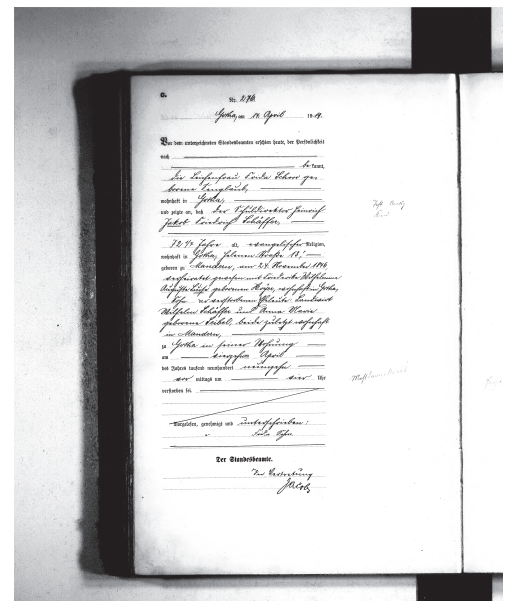 C.
Nr. 276.
Gotha, am 14. April 1919.
Vor dem unterzeichneten Standesbeamten erschien heute, der Persönlichkeit
nach
bekannt,
die Leichenfrau Frida
borene
wohnhaft in Gotha,
und zeigte an, daß der Schuldirektor Heinrich
Jakob Friedrich Schäffer,
72 Jahre alt, evangelischer Religion,
wohnhaft in Gotha, Straße 13,
geboren zu Mandern, am 24. November 1846,
verheiratet gewesen mit Friederike Wilhelmine
Auguste geborenen wohnhaft in Gotha,
Sohn verstorbenen Eheleute Landwirt
Wilhelm Schäffer und Anna Marie
geborene beide zuletzt wohnhaft
in Mandern,
zu Gotha in seiner Wohnung
am vierzehn April
des Jahres tausend neunhundert neunzehn
vor mittags um vier Uhr
verstorben sei.
Vorgelesen, genehmigt und unterschrieben:
Der Standesbeamte.
In Vertretung
Jacob